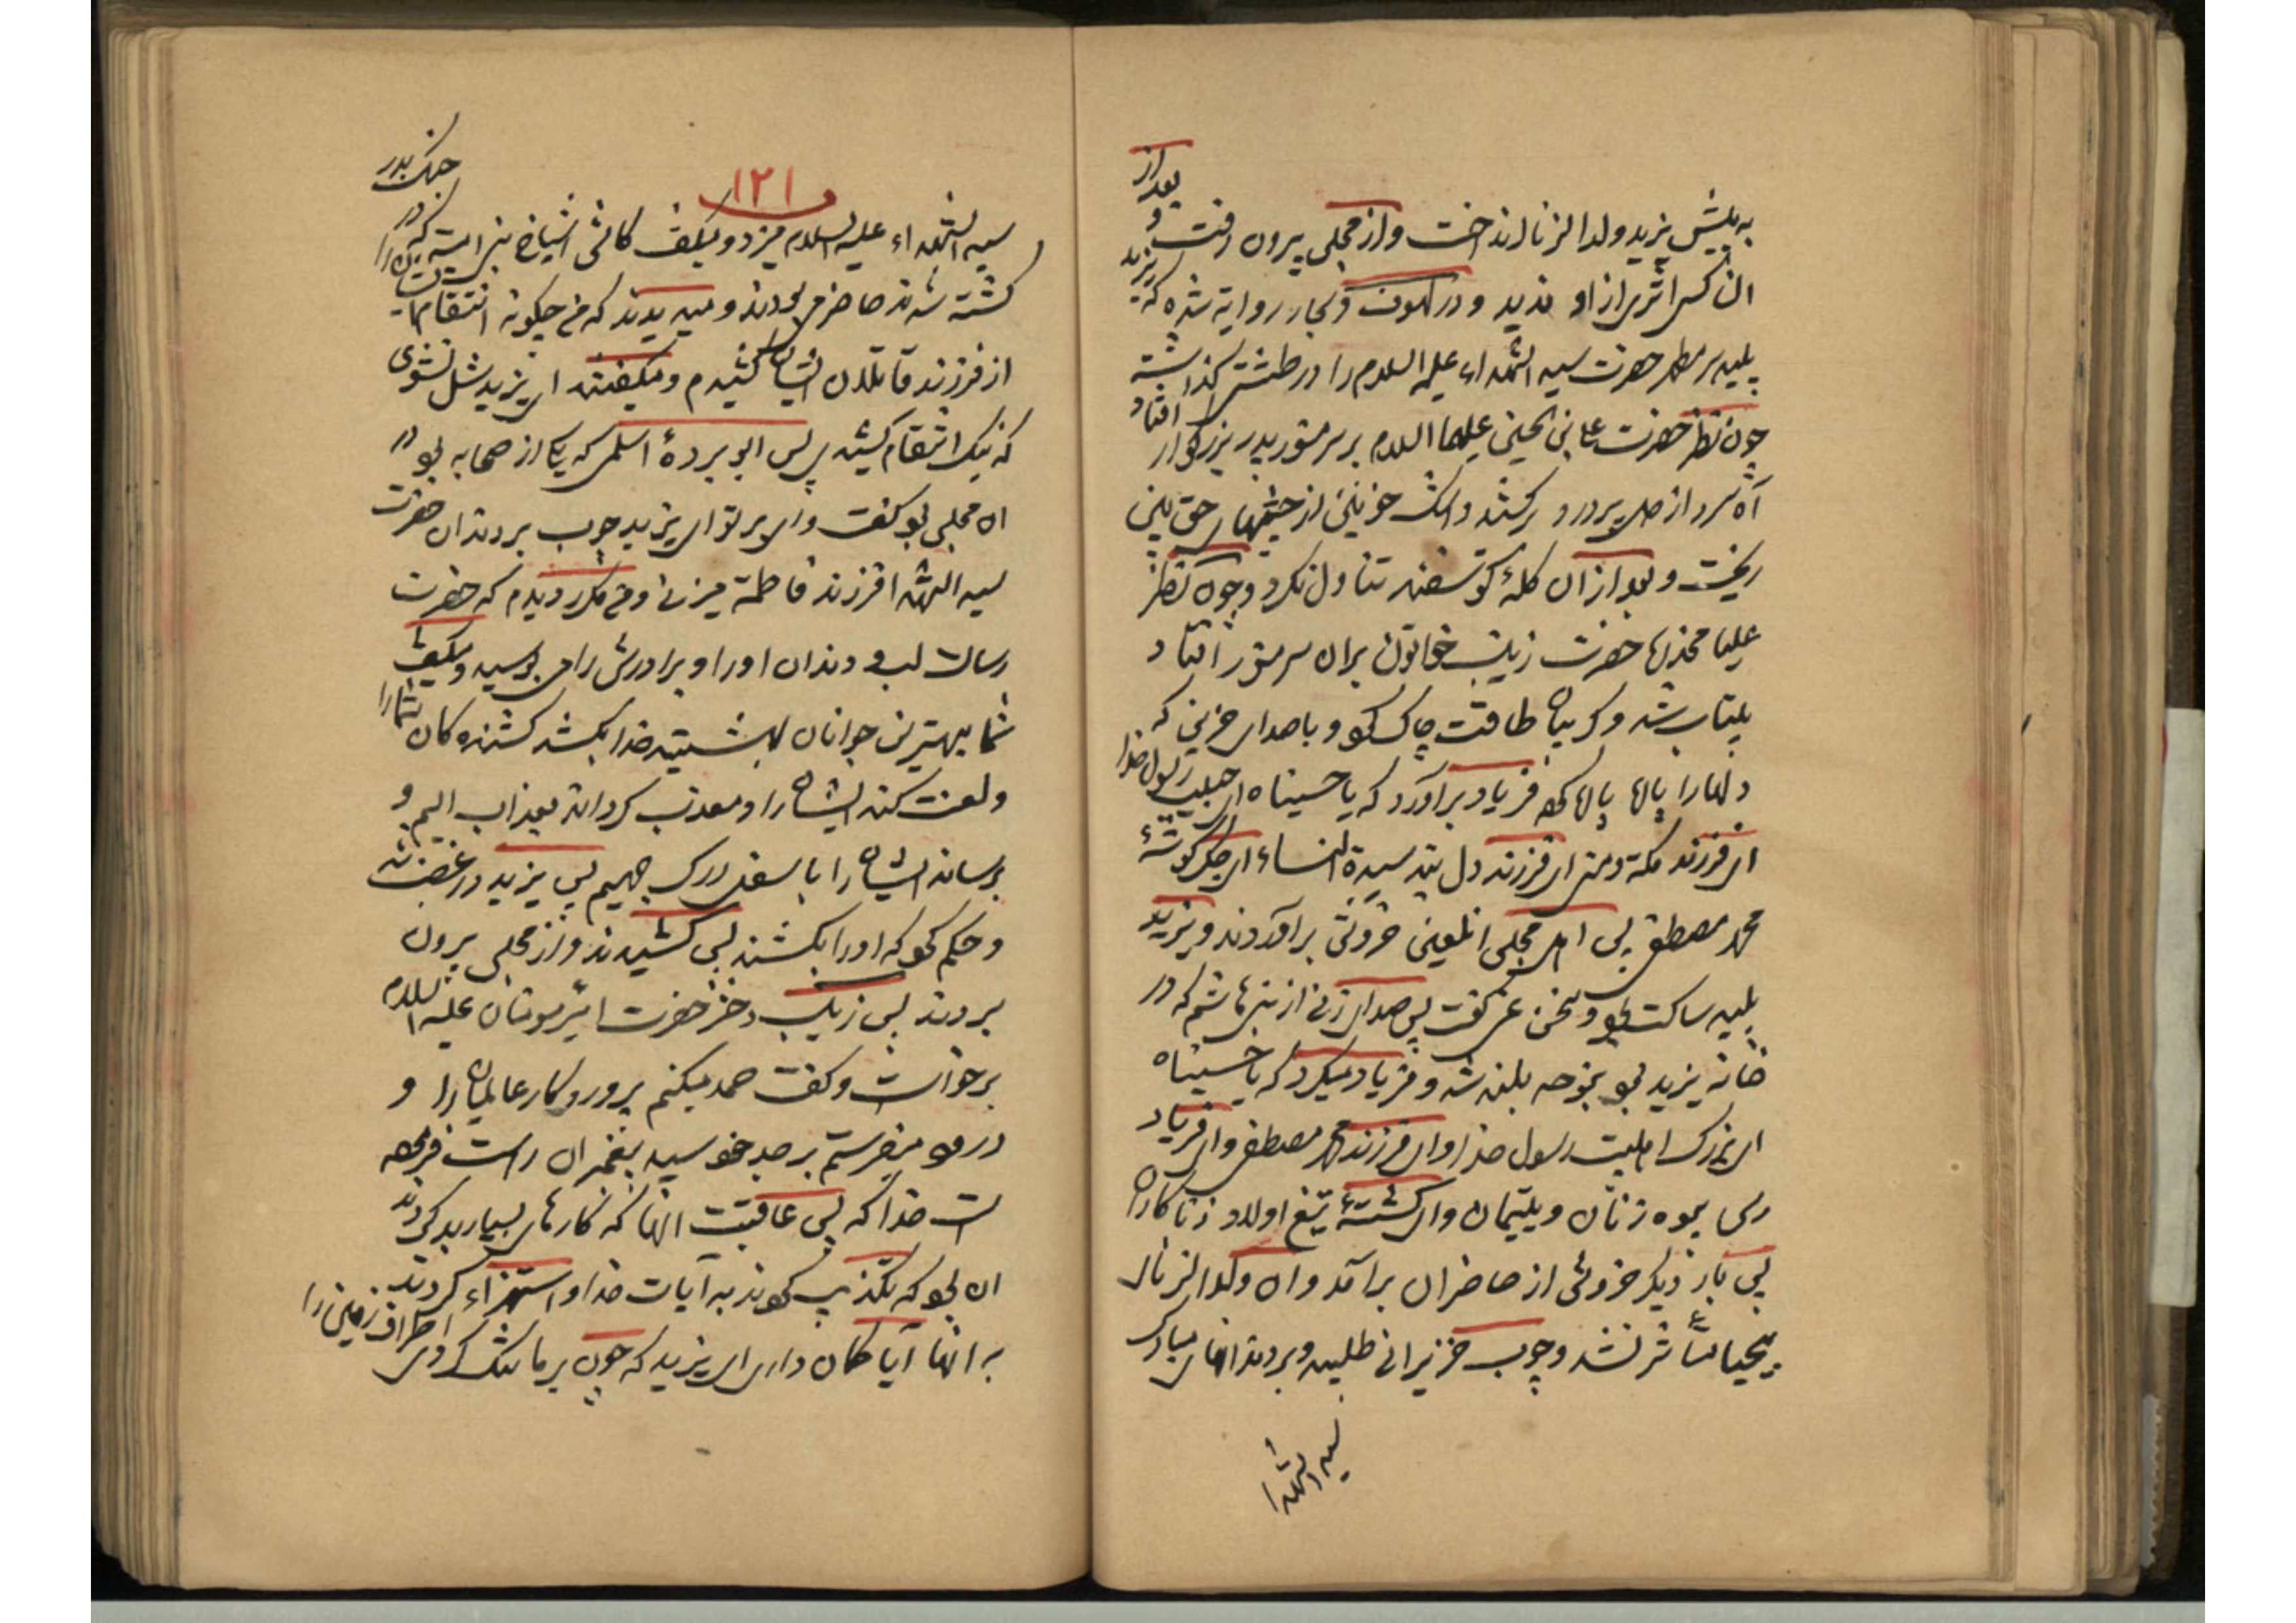 به پیش یزید ولد الزنا انداخت و از مجلس بیرون رفت و بعد از
ان کسی اثری از او ندید و در لهوف و بحار روایة شده که یزید
پلید سر مطهر حضرت سید الشهداء علیه السلام را در طشتی گذاشته
چون نظر حضرت علی بن الحسین علیهما السلام بر سر منور پدر بزرگوار افتاد
آه سرد از دل پر درد بر کشید و اشک خونین از چشمهای حق بین
ریخت و بعد از ان کلهٔ گوسفند تناول نکرد و چون نظر
علیا مخدره حضرت زینب خاتون بران سر منور افتاد
بیتاب شد و گریبان طاقت چاک نمود و با صدای حزینی که
دلها را پاره پاره نمود فریاد برآورد که یا حسیناه ای حبیب رسول خدا
ای فرزند مکه و منی ای فرزند دل بند سیدة النساء ای جگر گوشهٔ
محمد مصطفی پس اهل مجلس انلعین خروش برآوردند و یزید
پلید ساکت بود و سخن نمی گفت پس صدای زنی از بنی هاشم که در
خانه یزید بود بنوحه بلند شد و فریاد میکرد که یا حسیناه
ای بزرگ اهلبیت رسول خدا و ای فرزند محمد مصطفی و ای فریاد
رس بیوه زنان و یتیمان و ای کشتهٔ تیغ اولاد زناکاران
پس بار دیگر خروش از حاضران برآمد و ان ولد الزنای
بیحیا متأثر نشد و چوب خزیرانی طلبید و بر دندانهای مبارک
سید الشهدا
١٢١
سید الشهداء علیه السلام میزد و میگفت کاش اشیاخ بنی امیه که در جنک بدر
کشته شدند حاضر می بودند و میدیدند که من چگونه انتقام ایشان را
از فرزند قاتلان ایشان کشیدم و میگفتند ای یزید شل نشوی
که نیک انتقام کشیدی پس ابو بردهٔ اسلمی که یکی از صحابه بود در
ان مجلس بود گفت وای بر تو ای یزید چوب بر دندان حضرت
سید الشهدا فرزند فاطمة میزنی و من مکرر دیدم که حضرت
رسالت لب و دندان او را و برادرش را می بوسید و میگفت
شما بهترین جوانان بهشتید خدا بکشد کشنده کان شما را
و لعنت کند ایشان را و معذب گرداند بعذاب الیم و
برساند ایشان را با سفل درک جهیم پس یزید در غضب شد
و حکم نمود که او را بکشند پس کشیدند و از مجلس بیرون
بردند پس زینب دختر حضرت امیر مومنان علیه السلام
برخواست و گفت حمد میکنم پروردکار عالمیان را و
درود میفرستم بر جد خود سید پیغمبران راست فرموده
است خدا که پس عاقبت انها که کارهای بسیار بد کردند
ان بود که تکذیب نمودند به آیات خدا و استهزاء کردند
به انها آیا گمان داری ای یزید که چون بر ما تنک کردی اطراف زمین را